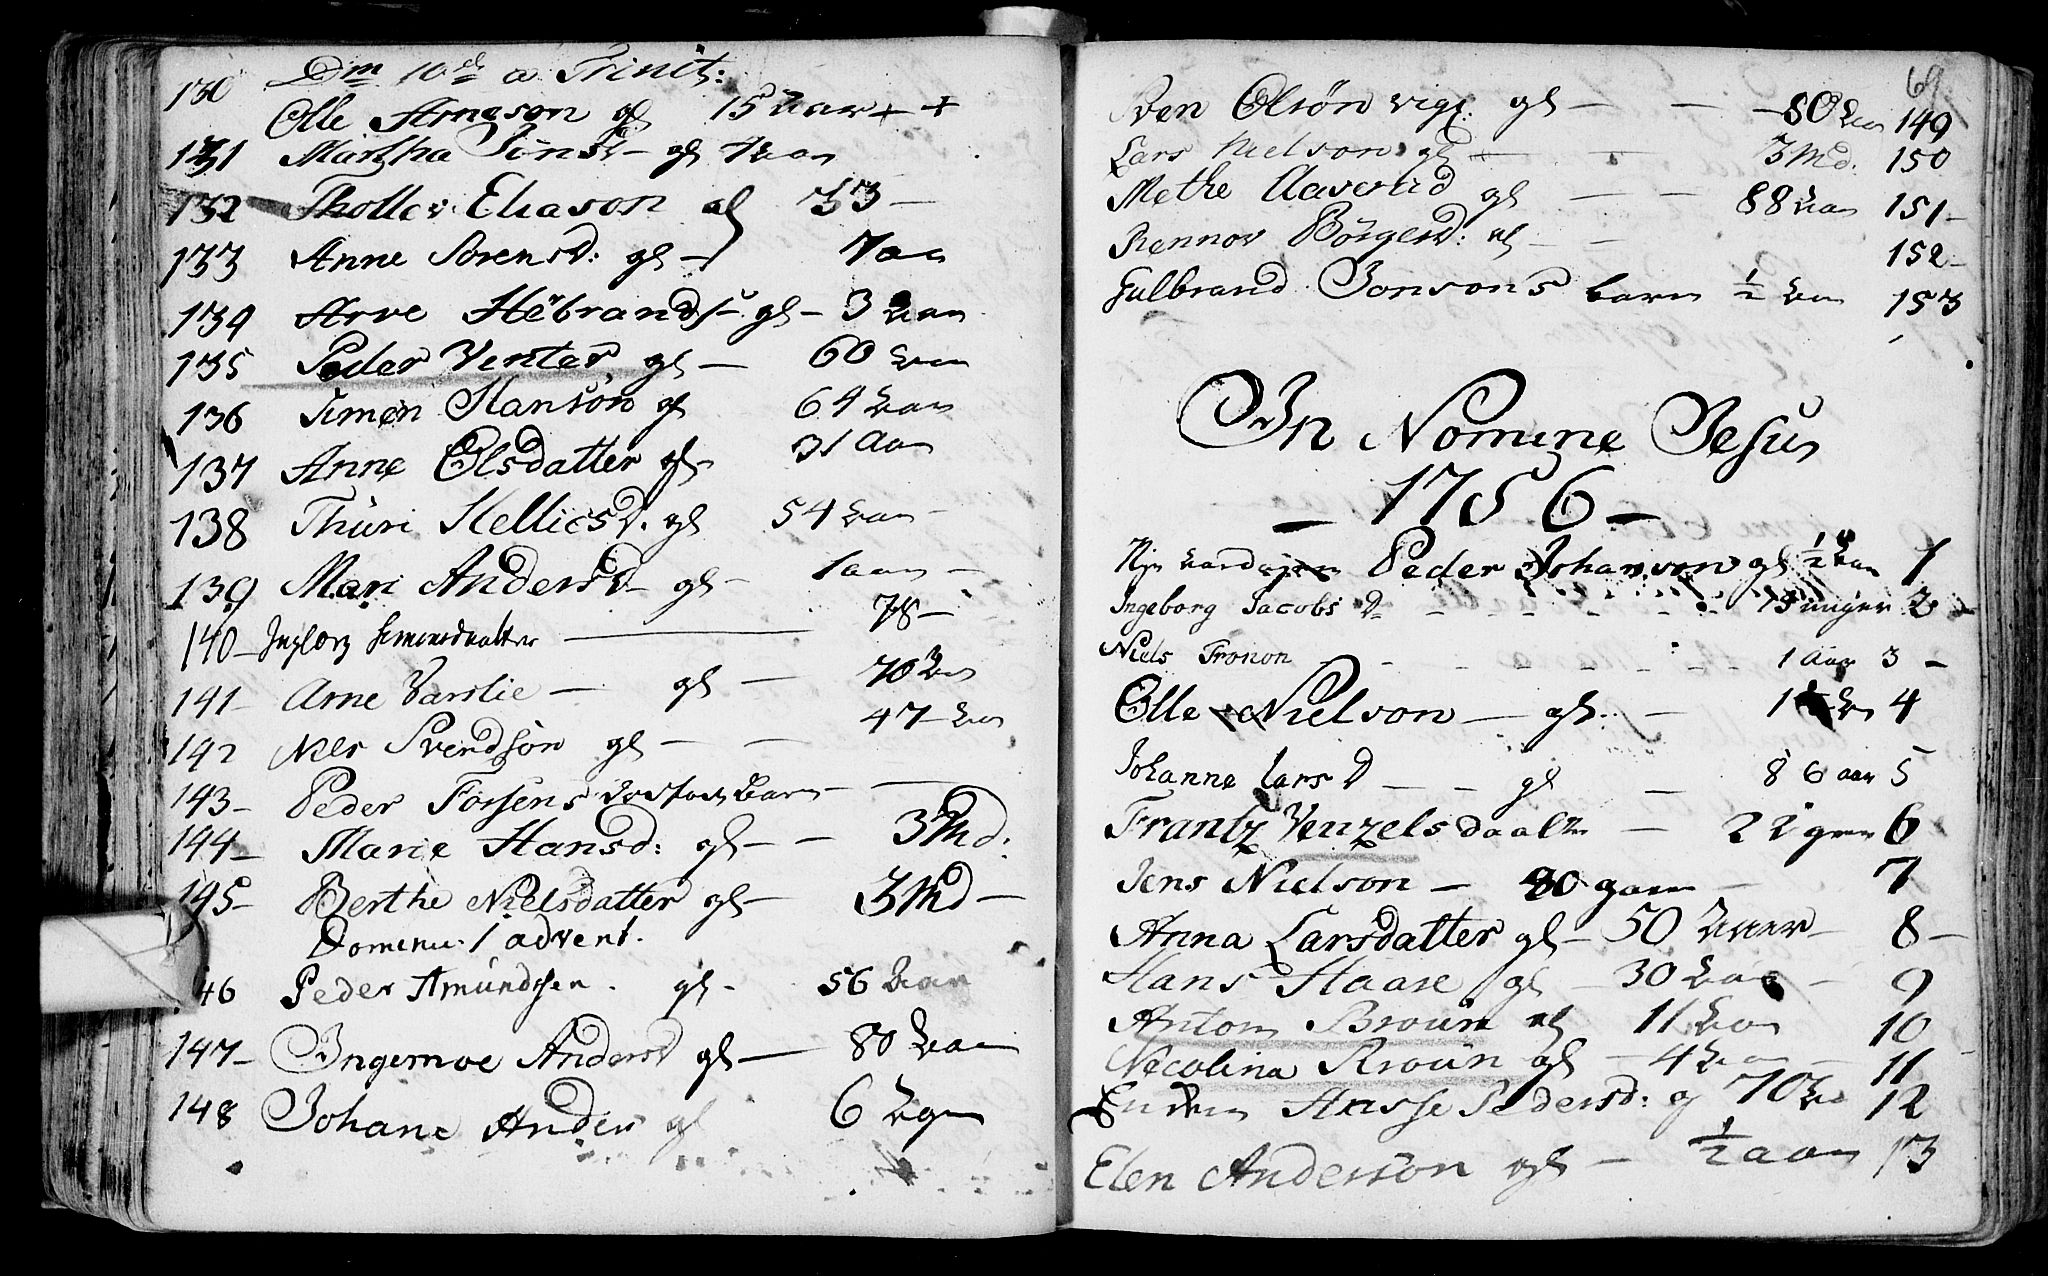 Dm 10de a Trinit:
130 Olle Arneson gl 15 aar + +
131 Martha Jonsd - gl 7 aar
132 Thollev Eliason gl 33 -
133 Anne Sørensd: gl - 7 aa
134 Arve Hebrands gl - 3 aar
135 Peder Venter gl - 60 aar
136 Simen Hansøn gl 64 aar
137 Anne Olsdatter gl - 31 Aar
138 Thuri Hellicsd. gl 54 aar -
139 Mari Andersd - gl - 1 aar -
140 - Ingborg Simensdaatter 78 -
141 - Arne Varslie - gl - 70 aar
142 Nels Svendsøn gl - - 47 - aar
143 - Peder Fossens barn - -
144 - Marie Hansd: gl - - 3 Md:
145 - Berthe Nielsdatter gl - 3 Md -
Dominu. 1 advent.
46 Peder Amundssen. gl - 56 aar
147 - Ingemoe Andersd gl - 80 aar
148 Johane Anders gl 6 Uger
69
Sven Olsøn vige: gl - - - 80 aar 149
Lars Nielson gl - - 3 Md. 150
Methe Aaserud gl - - 88 aar 151 -
Rennov Børgesd: gl - - 152 -
Gulbrand Jonsons barn ½ aar 153
In Nomine Jesu
- 1756 -
Nye aarsdagen Peder Johanson gl ½ aar 1
Ingeborg Jacobs D - - - - - uger 2 -
Niels Tronon - - - - - 1 Aar 3 -
Olle Nielson - gl. - 1 4
Johanne Lars D - - gl - 86 aar 5
Frantz Venzels daatr - 2 6
Jens Nielson - 80 gam - 7
Anna Larsdatter gl - 50 aar - 8 -
Hans Haare gl - 30 aar - 9
Anton Broun gl 11 aar 10
Necolina Broun gl - 4 aar - 11
Enken Ansse Pedersd: g 70 aar 12
Elen Andersøn gl - ½ aar 13